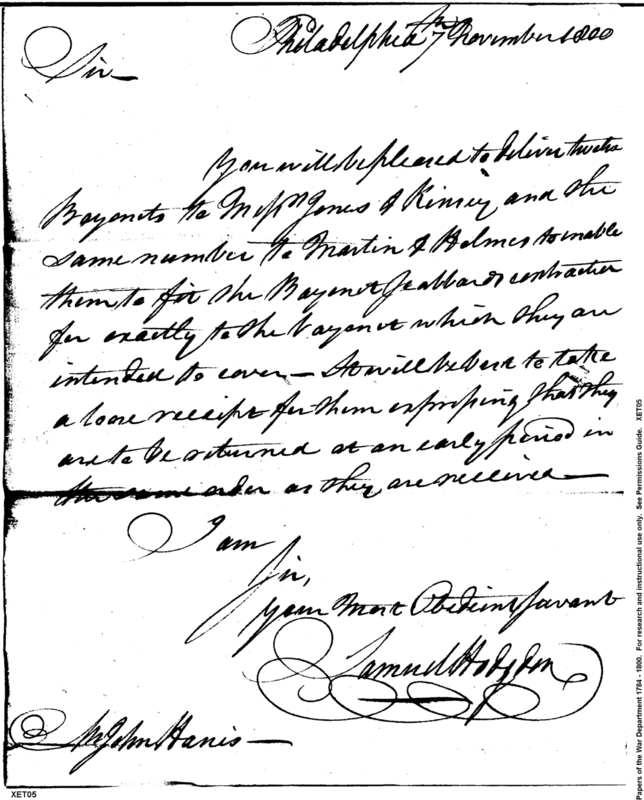 Philadelphia 7th November 1800
Sir—
You will be pleased to deliver twelve
Bayonets to Messrs Jones & Kinsey and the
same number to Martin & Holmes to enable
them to fit the Bayonet Scabbards contracted
for exactly to the bayonet which they are
intended to cover— It will be best to take
a loose receipt for them expressing that they
are to be returned at an early period in
the same order as they are received—
I am
Sir,
your Most Obedient Servant
Samuel Hodgdon
Mr John Harris—
XET05
Papers of the War Department 1784 - 1800. For research and instructional use only. See Permissions Guide. XET05